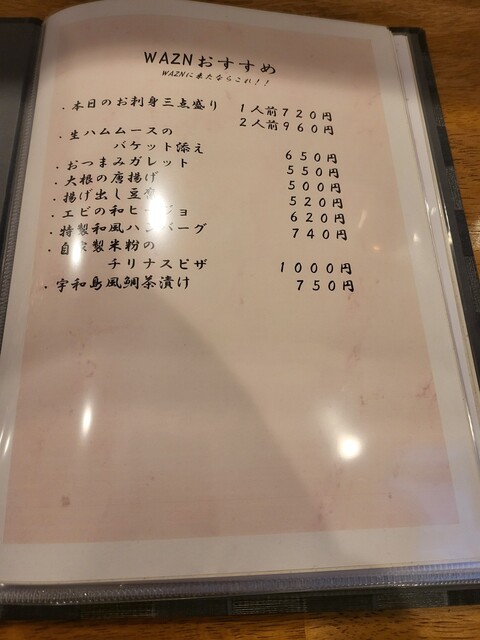 WAZNおすすめ
WAZNに来たならこれ！！
・本日のお刺身三点盛り 1人前720円
2人前960円
・生ハムムースの
バケット添え 650円
・おつまみガレット 550円
・大根の唐揚げ 500円
・揚げ出し豆腐 520円
・エビの和ヒージョ 620円
・特製和風ハンバーグ 740円
・自家製米粉の
チリナスピザ 1000円
・宇和島風鯛茶漬け 750円